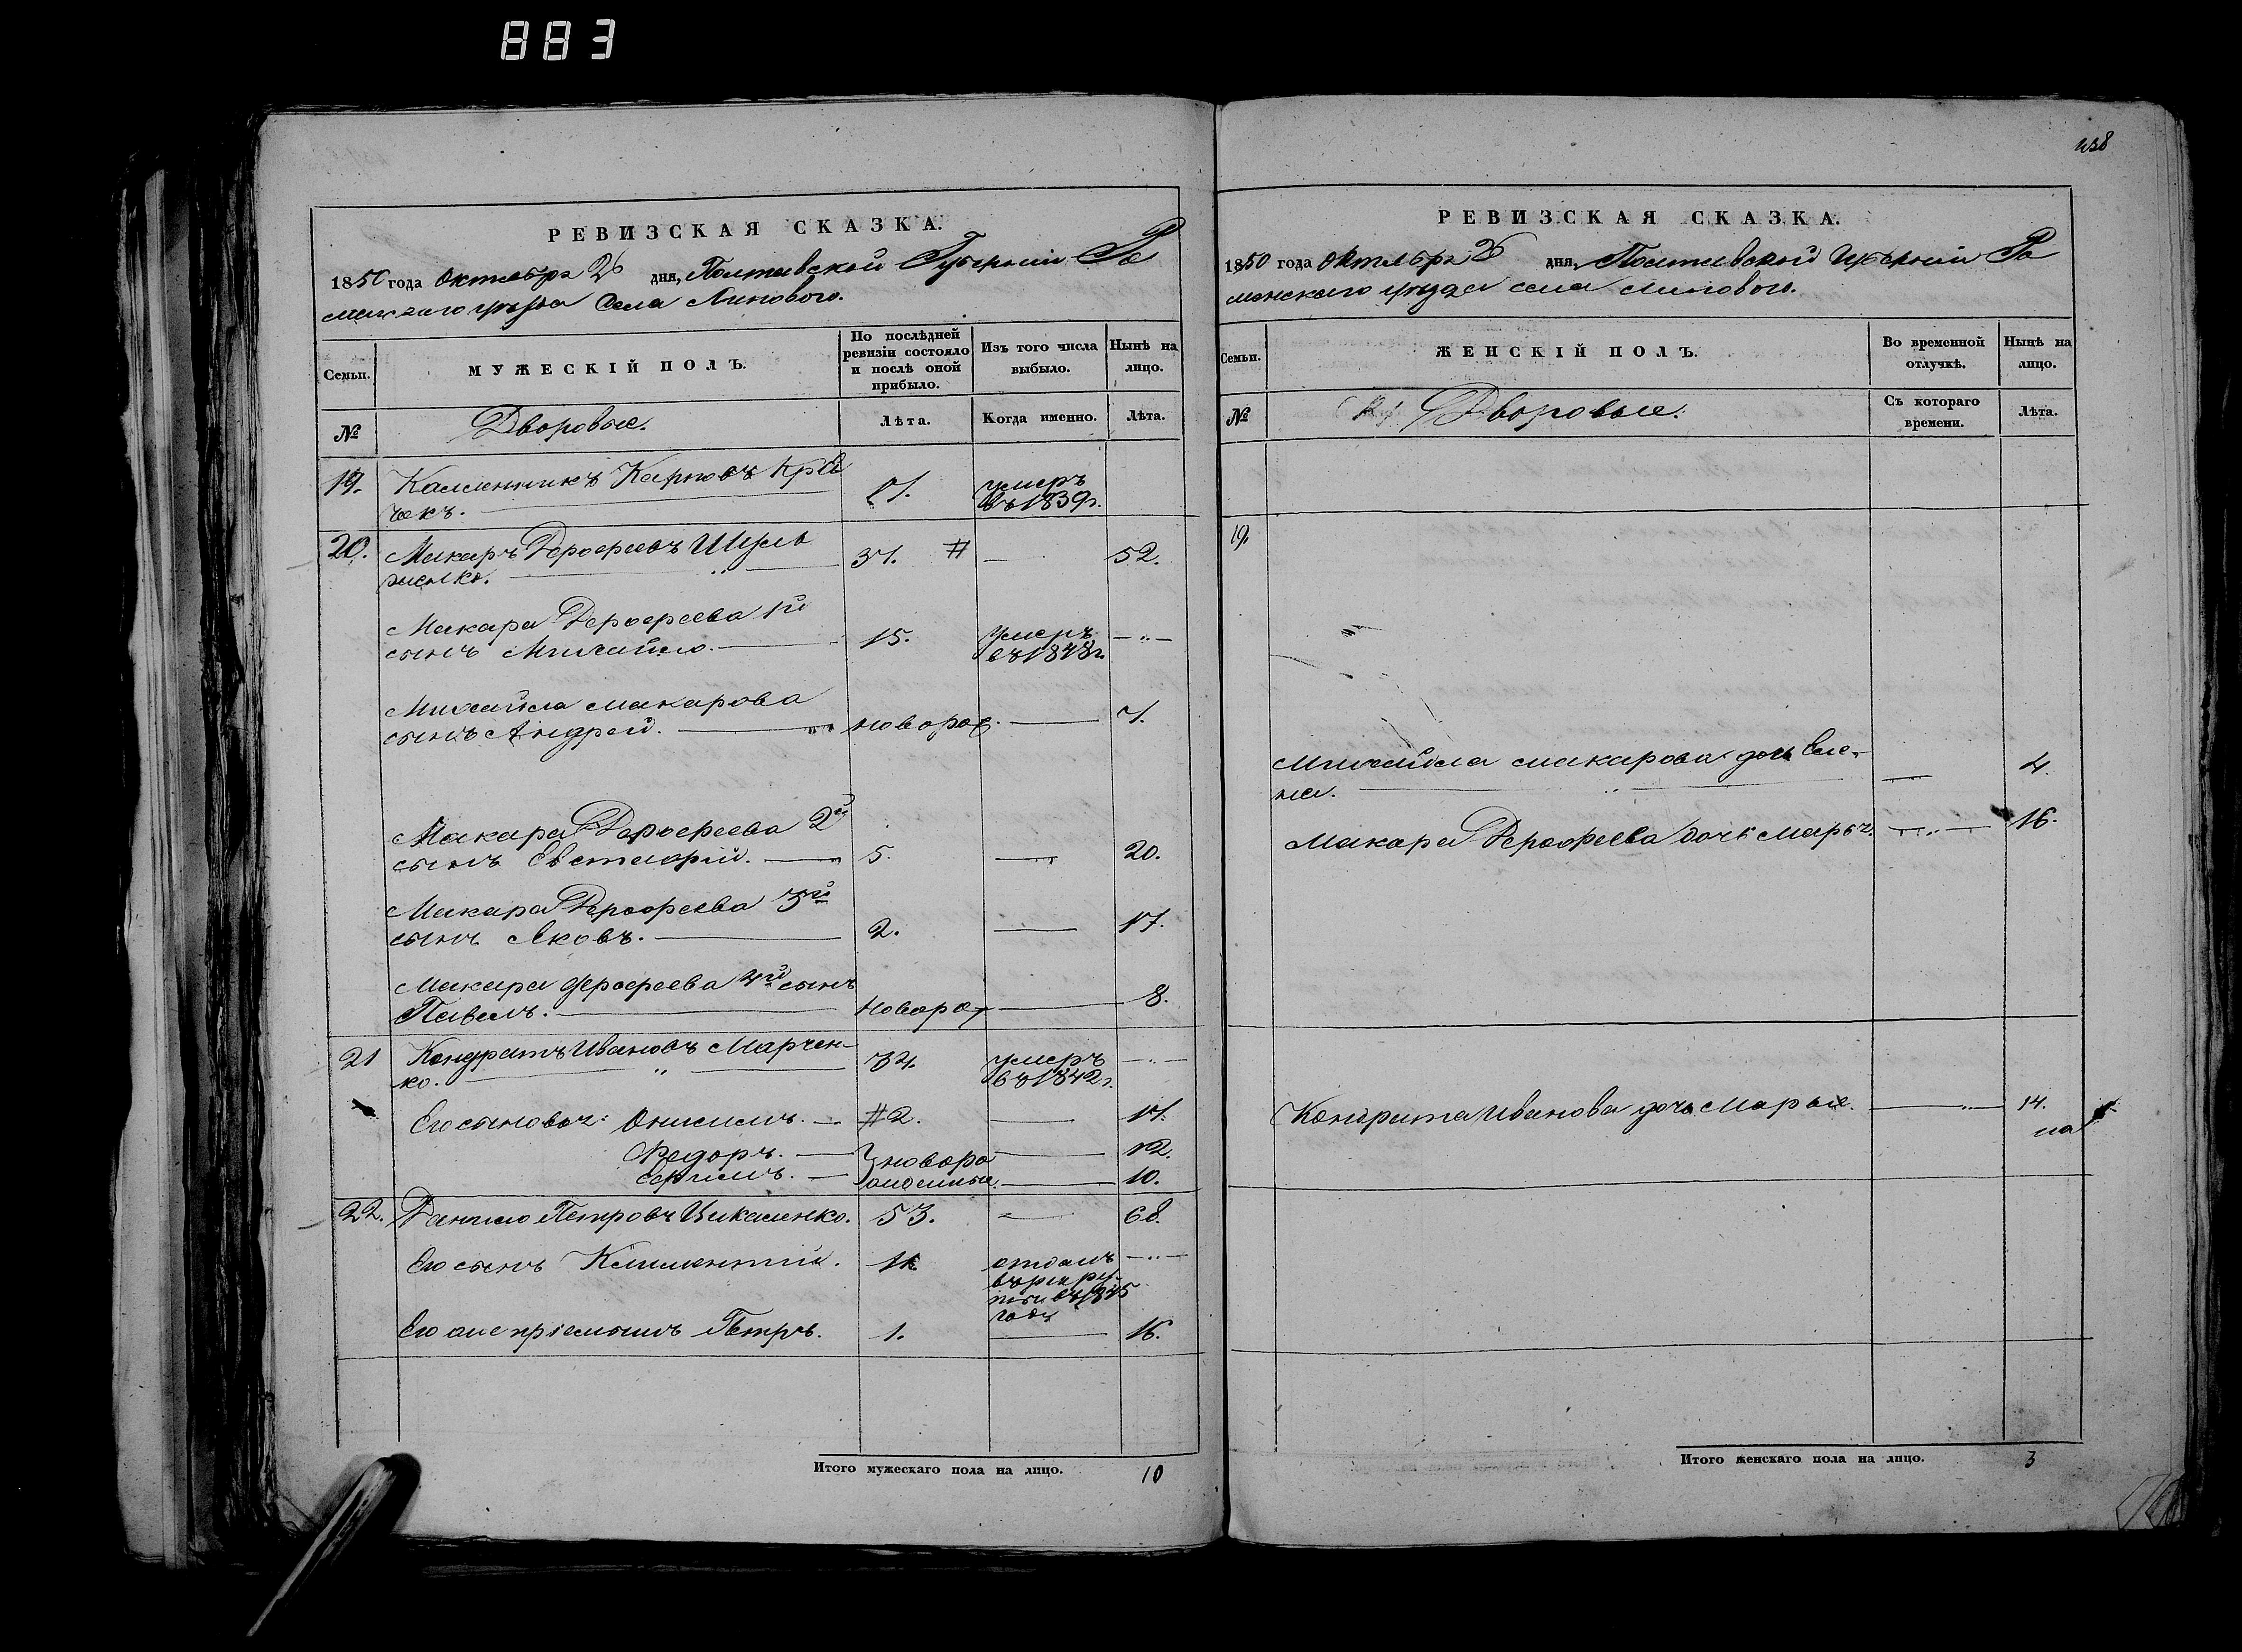 883
438
РЕВИЗСКАЯ СКАЗКА.
1850 года Октября 26 дня, Полтавской Губерніи Ро
менскаго уѣзда Села Липового.
Семьи.
МУЖЕСКІЙ ПОЛЪ.
По послѣдней ревизіи состояло и послѣ оной прибыло.
Изъ того числа выбыло.
Нынѣ на лицо.
№
Дворовые.
Лѣта.
Когда именно.
Лѣта.
19. Каленникъ Карповъ
чекъ. 71. умеръ въ 1839г.
20. Макаръ Дерофеевъ
37. # — 52.
Макара Дерофеева 1й
сынъ Михайло. — 15. Умеръ въ 1848г. — " —
Михайла Макарова
сынъ Андрей. — новорож. — 7.
Макара Дерофеева 2й
сынъ Евстафій. — 5. — 20.
Макара Дерофеева 3й
сынъ Яковъ. — 2. — 17.
Макара Дерофеева 4й сынъ
Павелъ. — новорож — 8.
21 Кондратъ Ивановъ Марчен-
ко. — " — 34. умеръ въ 1842г. — " —
Его сыновья: Онисимъ. — #2. — 17.
Федоръ. — новоро — 12.
Ефимъ. — жденные. — 10.
22. Данило Петровъ Цикаленко. 53. — 68.
Его сынъ Климентій. 11. отданъ — " —
въ рекру-
ты въ 1845
году
Его же пріемышъ Петръ. 1. — 16.
Итого мужескаго пола на лицо. 10
РЕВИЗСКАЯ СКАЗКА.
1850 года Октября 26 дня, Полтавской Губерніи Ро
менскаго уѣзда села Липового.
Семьи.
ЖЕНСКІЙ ПОЛЪ.
Во временной отлучкѣ.
Нынѣ на лицо.
№
Дворовые.
Съ котораго времени.
Лѣта.
19.
Михайла Макарова дочь Еле-
на. — 4.
Макара Дерофеева дочь Марья. — " — 16.
Кондрата Иванова дочь Марья. — " — 14.
Итого женскаго пола на лицо. 3